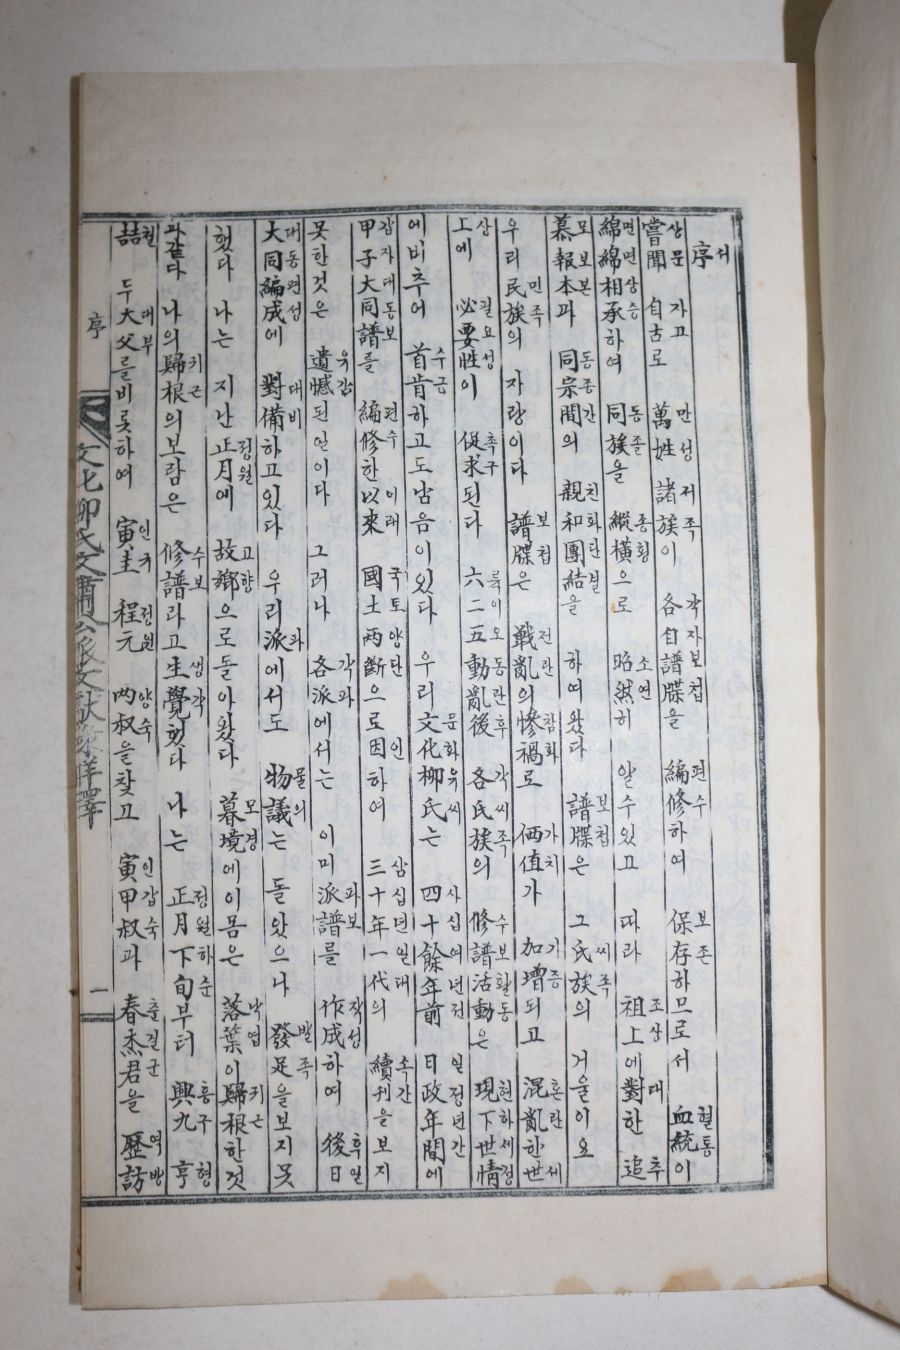 序서
嘗聞상문 自古자고로 萬姓만성 諸族저족이 各自각자譜牒보첩을 編修편수하여 保存보존하므로서 血統혈통이
綿綿相承면면상승하여 同族동족을 縱橫종횡으로 昭然소연히 알수있고 따라 祖上조상에 對대한 追추
慕報本모보본과 同宗間동종간의 親和團結친화단결을 하여왔다 譜牒보첩은 그 氏族씨족의 거울이요
우리 民族민족의 자랑이다 譜牒보첩은 戰亂전란의 慘禍참화로 価値가치가 加增가증되고 混亂혼란한 世세
上상에 必要性필요성이 促求촉구된다 六二五動亂後륙이오동란후 各氏族각씨족의 修譜活動수보활동은 現下世情현하세정
에비추어 首肯수긍하고도남음이있다 우리 文化柳氏문화유씨는 四十餘年前사십여년전 日政年間일정년간에
甲子大同譜갑자대동보를 編修편수한 以來이래 國土両斷국토양단으로 因인하여 三十年一代삼십년일대의 續刊속간을보지
못한것은 遺憾유감된일이다 그러나 各派각파에서는 이미 派譜파보를 作成작성하여 後日후일
大同編成대동편성에 對備대비하고있다 우리派파에서도 物議물의는 돌았으나 發足발족을보지못
했다 나는 지난 正月정월에 故鄕고향으로돌아왔다 暮境모경에이몸은 落葉낙엽이歸根귀근한것
과같다 나의歸根귀근의보람은 修譜수보라고生覺생각했다 나는 正月下旬정월하순부터 興九흥구 亨형
喆철 두大父대부를비롯하여 寅圭인규 程元정원 両叔양숙을찾고 寅甲叔인갑숙과 春杰君춘걸군을 歷訪역방
序
文化柳氏文肅公派文獻錄詳譯
一